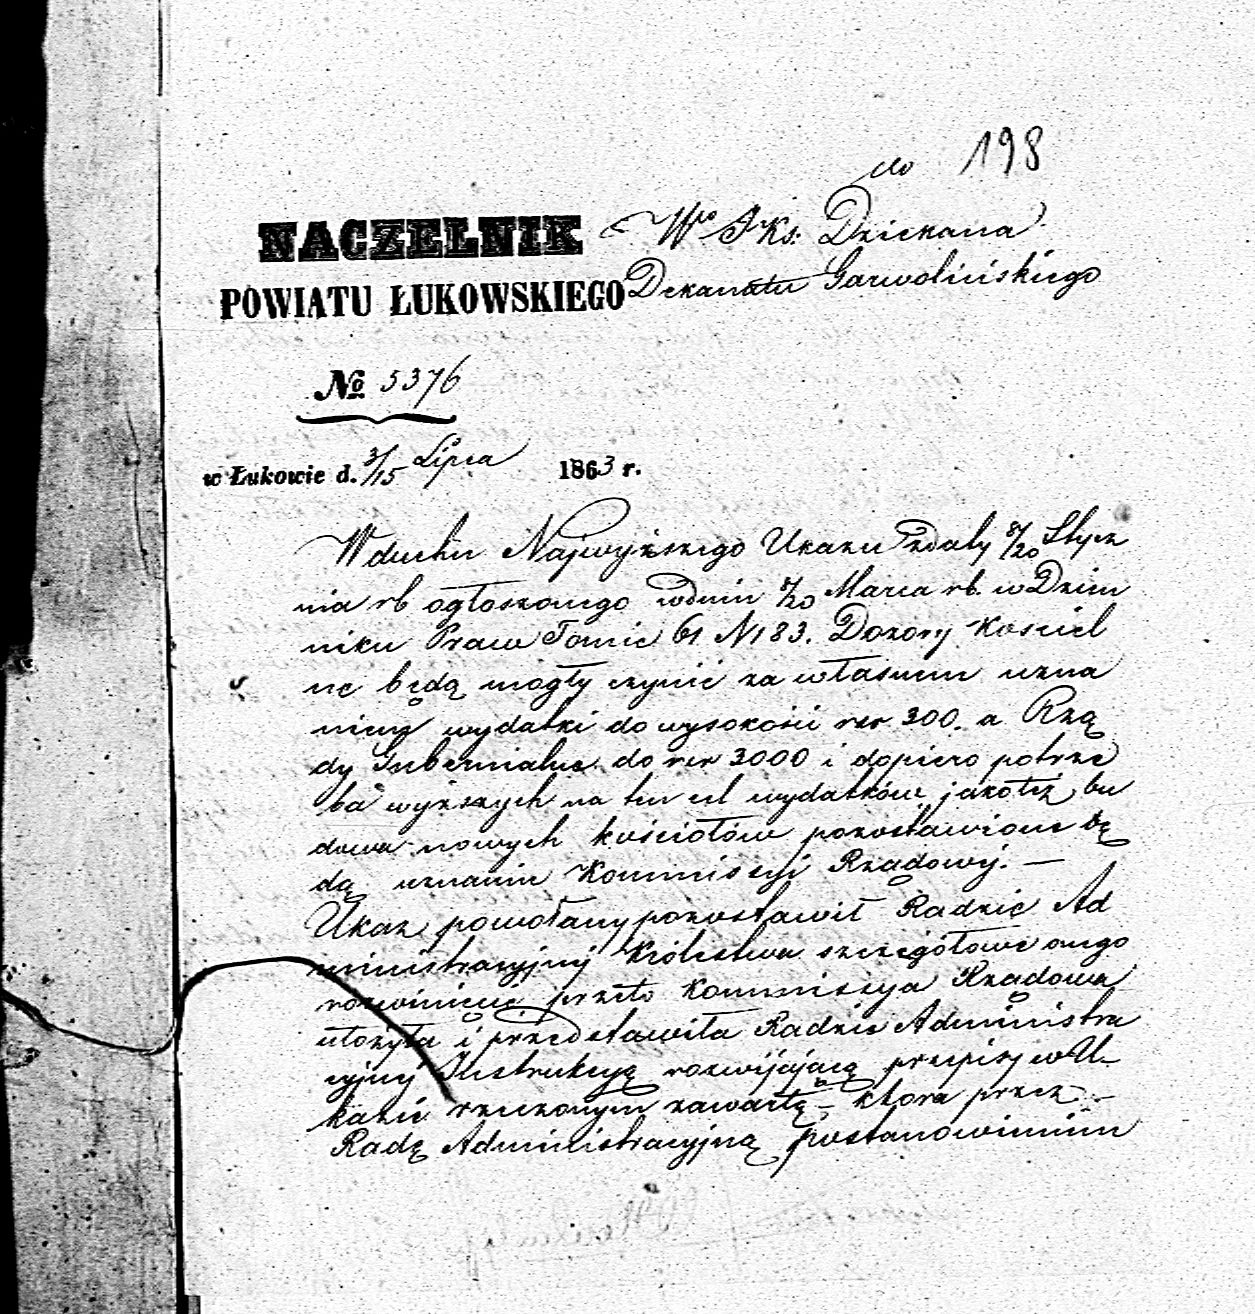 198
do
NACZELNIK
Wo JKs: Dziekana
POWIATU ŁUKOWSKIEGO
Dekanatu Garwolińskiego
No 5376
w Łukowie d. 3/15 Lipca 1863 r.
W duchu Najwyższego Ukazu z daty 8/20 Stycz
nia rb ogłoszonego w dniu 8/20 Marca rb. w Dzien
niku Praw Tomie 61 N 183. Dozory Kościel
ne będą mogły czynić za własnem uzna
niem wydatki do wysokości rsr 300. a Rzą
dy Gubernialne do rsr 3000 i dopiero potrze
ba wyższych na ten cel wydatków, jakoteż bu
dowa nowych kościołów pozostawione bę
dą uznaniu Kommissyi Rządowéj. —
Ukaz powołany pozostawił Radzie Ad
ministracyjnéj Królestwa szczegółowe onego
rozwinięcie, przeto Kommissya Rządowa
ułożyła i przedstawiła Radzie Administra
cyjnéj Instrukcyą rozwijającą przepisy w U
kazie rzeczonym zawarte, – która przez –
Radę Administracyjną postanowieniem